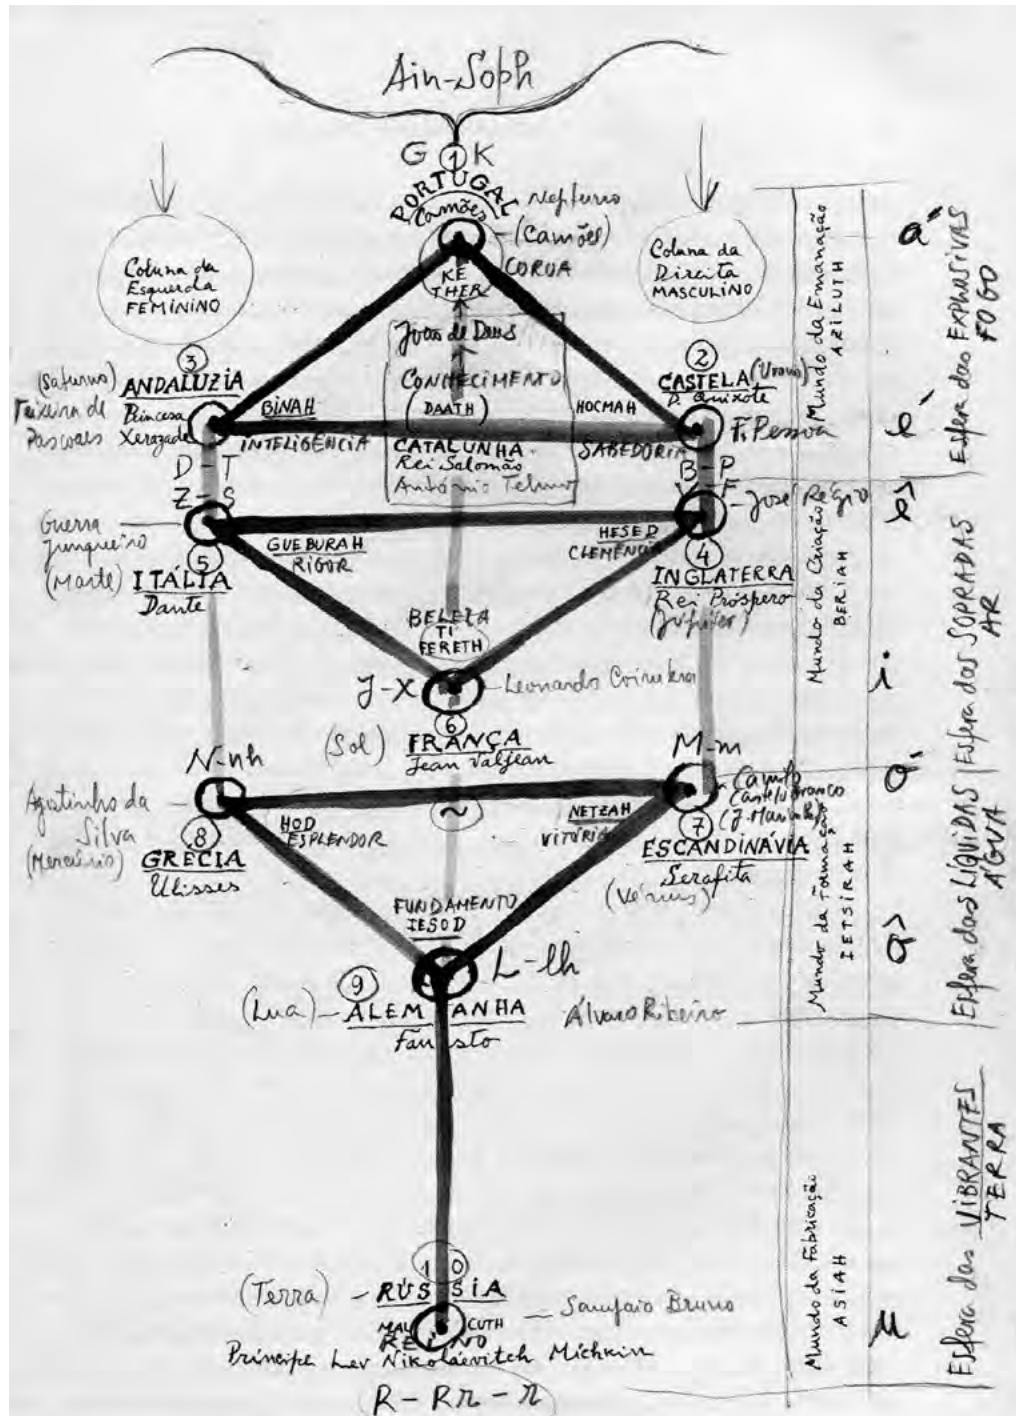 Ain-Soph
G 1 K
PORTUGAL
Camões
Neptuno
(Camões)
COROA
KE
THER
Coluna da
Esquerda
FEMININO
Coluna da
Direita
MASCULINO
João de Deus
CONHECIMENTO
(DAATH)
CATALUNHA
Rei Salomão
António Telmo
3
(Saturno)
ANDALUZIA
Teixeira de
Pascoaes
Princesa
Xerazade
BINAH
INTELIGÊNCIA
D - T
Z - S
2
CASTELA (Urano)
D. Quixote
HOCMAH
SABEDORIA
F. Pessoa
B - P
V - F
José Régio
Guerra
Junqueiro
(Marte)
5
ITÁLIA
Dante
GUEBURAH
RIGOR
HESED
CLEMÊNCIA
4
INGLATERRA
Rei Próspero
(Júpiter)
BELEZA
TI
FERETH
J-X
Leonardo Coimbra
6
(Sol)
FRANÇA
Jean Valjean
N-nh
Agostinho da
Silva
(Mercúrio)
8
GRÉCIA
Ulisses
HOD
ESPLENDOR
~
M-m
Camilo
Castelo Branco
NETZAH
VITÓRIA
7
ESCANDINÁVIA
Serafita
(Vénus)
FUNDAMENTO
IESOD
L-lh
9
(Lua) - ALEMANHA
Fausto
Álvaro Ribeiro
10
(Terra) - RÚSSIA
Sampaio Bruno
MALCUTH
REINO
Príncipe Lev Nikolaévitch Michkin
R - Rr - r
Mundo da Emanação
AZILUTH
Mundo da Criação
BERIAH
Mundo da Formação
IETSIRAH
Mundo da Fabricação
ASIAH
a´
é
ê
i
ó
ô
u
Esfera das EXPLOSIVAS
FOGO
Esfera das SOPRADAS
AR
Esfera das LÍQUIDAS
ÁGUA
Esfera das VIBRANTES
TERRA